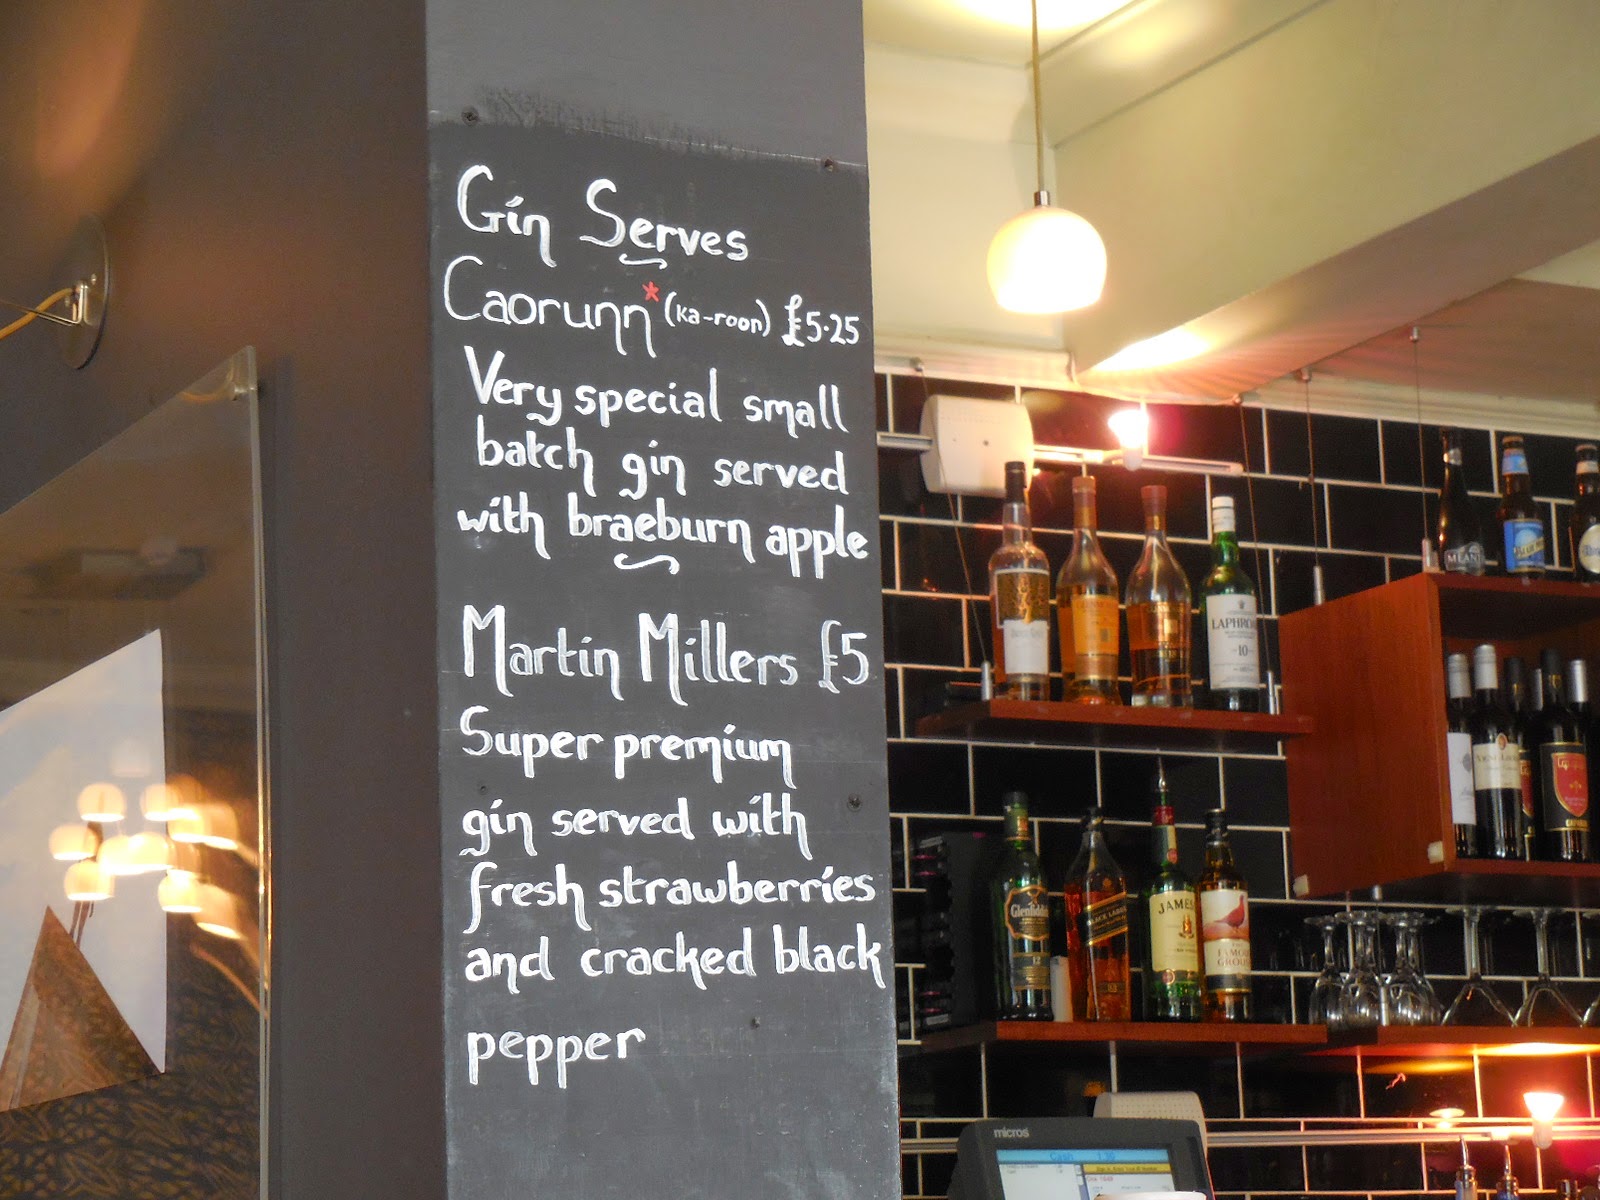 Gin Serves
Caorunn* (ka-roon) £5.25
Very special small
batch gin served
with braeburn apple
Martin Millers £5
Super premium
gin served with
fresh strawberries
and cracked black
pepper
LAPHROA
10
Glenfiddich
12
BLACK LABEL
JAMES
FAMOUS
GROUSE
micros
Cash